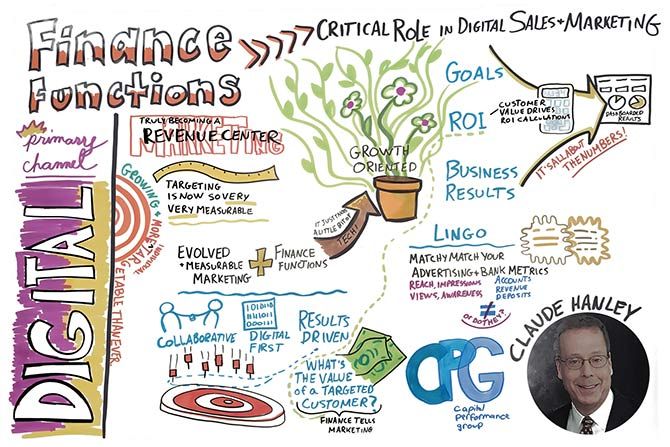 Finance
Functions
CRITICAL ROLE IN DIGITAL SALES + MARKETING
primary
channel
DIGITAL
TRULY BECOMING A
MARKETING
REVENUE CENTER
GROWING + MORE TARGETABLE THAN EVER
INDIVIDUAL
TARGETING
IS NOW SO VERY
VERY MEASURABLE
EVOLVED
+ MEASURABLE
MARKETING
+
FINANCE
FUNCTIONS
IT JUST TAKES
A LITTLE BIT OF
TECH!
GROWTH
ORIENTED
GOALS
ROI
CUSTOMER
VALUE DRIVES
ROI CALCULATIONS
BUSINESS
RESULTS
DASHBOARDED
RESULTS
IT'S ALL ABOUT
THE NUMBERS!
LINGO
MATCHY MATCH YOUR
ADVERTISING + BANK METRICS
REACH, IMPRESSIONS
VIEWS, AWARENESS
≠
OR DO THEY?
ACCOUNTS
REVENUE
DEPOSITS
COLLABORATIVE
DIGITAL
FIRST
RESULTS
DRIVEN
WHAT'S
THE VALUE
of a TARGETED
CUSTOMER?
FINANCE TELLS
MARKETING
CPG
capital
performance
group
CLAUDE HANLEY